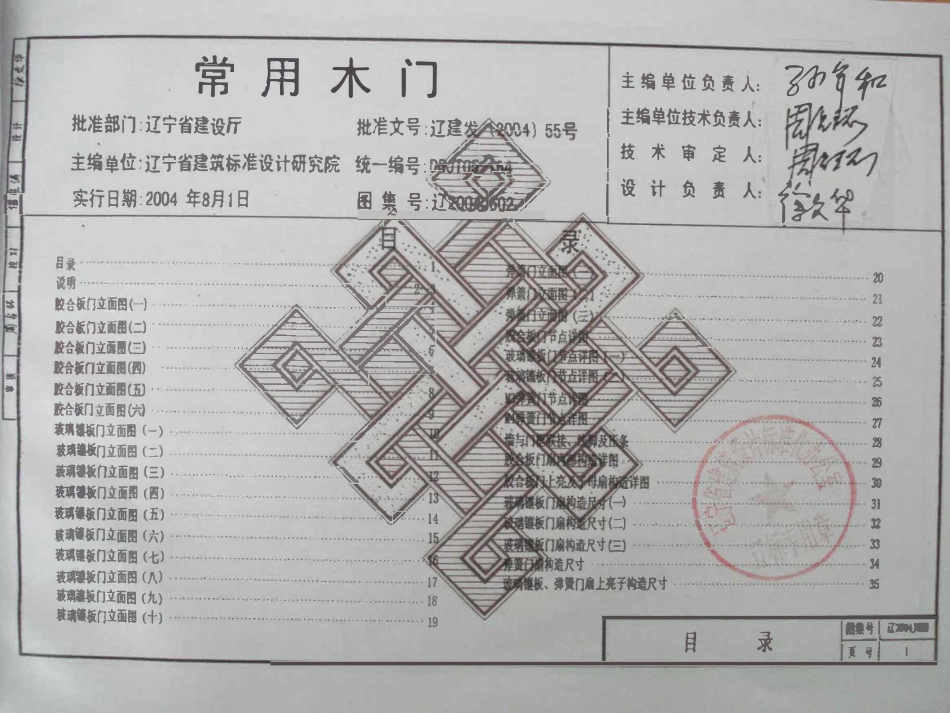 常用木门
批准部门:辽宁省建设厅
批准文号:辽建发〔2004〕55号
主编单位:辽宁省建筑标准设计研究院
统一编号:
实行日期:2004 年8月1日
图集号:辽2004J602
主编单位负责人:
主编单位技术负责人:
技术审定人:
设计负责人:
目录
目录 1
说明 2
胶合板门立面图(一)
胶合板门立面图(二)
胶合板门立面图(三) 6
胶合板门立面图(四)
胶合板门立面图(五) 8
胶合板门立面图(六) 9
玻璃镶板门立面图(一) 10
玻璃镶板门立面图(二) 11
玻璃镶板门立面图(三) 12
玻璃镶板门立面图(四) 13
玻璃镶板门立面图(五) 14
玻璃镶板门立面图(六) 15
玻璃镶板门立面图(七) 16
玻璃镶板门立面图(八) 17
玻璃镶板门立面图(九) 18
玻璃镶板门立面图(十) 19
弹簧门立面图(一) 20
弹簧门立面图(二) 21
弹簧门立面图(三) 22
胶合板门节点详图 23
玻璃镶板门节点详图(一) 24
玻璃镶板门节点详图(二) 25
弹簧门节点详图 26
弹簧门节点详图 27
墙与门框联接、线脚及压条 28
胶合板门扇内部构造详图 29
胶合板门上亮及子母扇构造详图 30
玻璃镶板门扇构造尺寸(一) 31
玻璃镶板门扇构造尺寸(二) 32
玻璃镶板门扇构造尺寸(三) 33
弹簧门扇构造尺寸 34
玻璃镶板、弹簧门扇上亮子构造尺寸 35
目录
图集号
页号 1